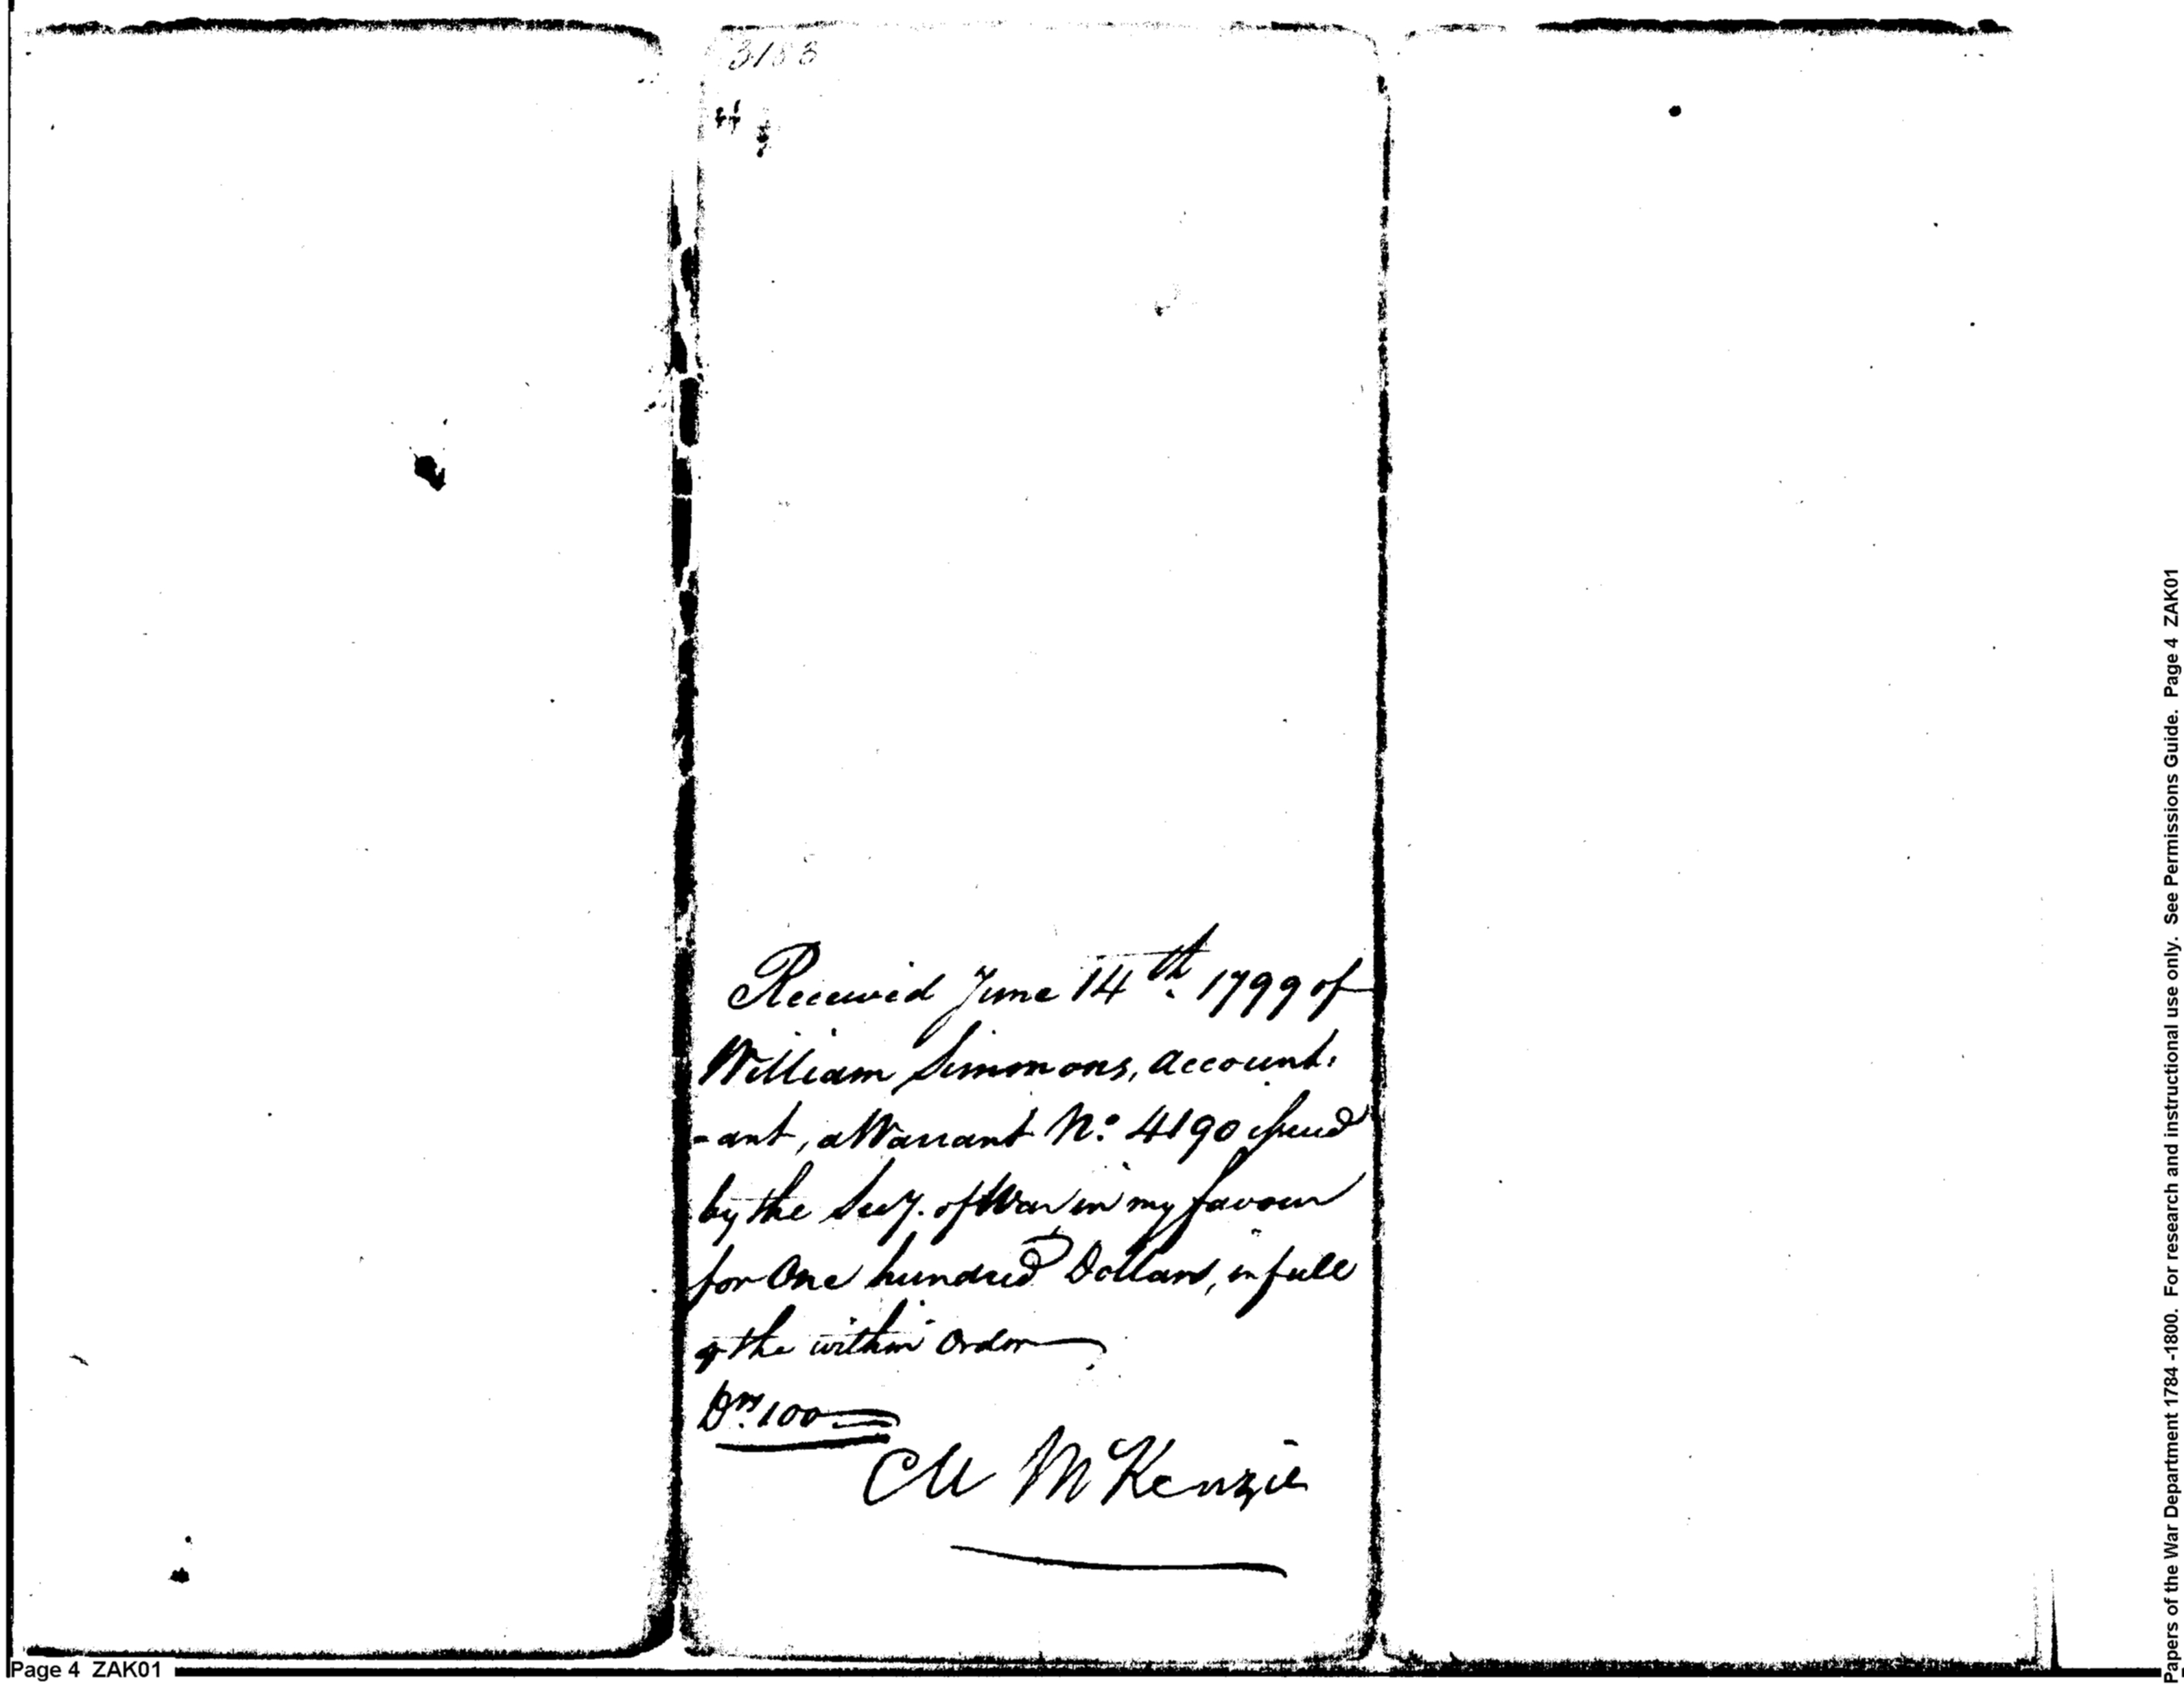 3153
Received June 14th. 1799 of
William Simmons, account:
-ant, a Warrant No. 4190 issued
by the Secy. of War in my favour
for One hundred Dollars, in full
of the within Order
Drs. 100
M McKenzie
Page 4 ZAK01
Papers of the War Department 1784 -1800. For research and instructional use only. See Permissions Guide. Page 4 ZAK01